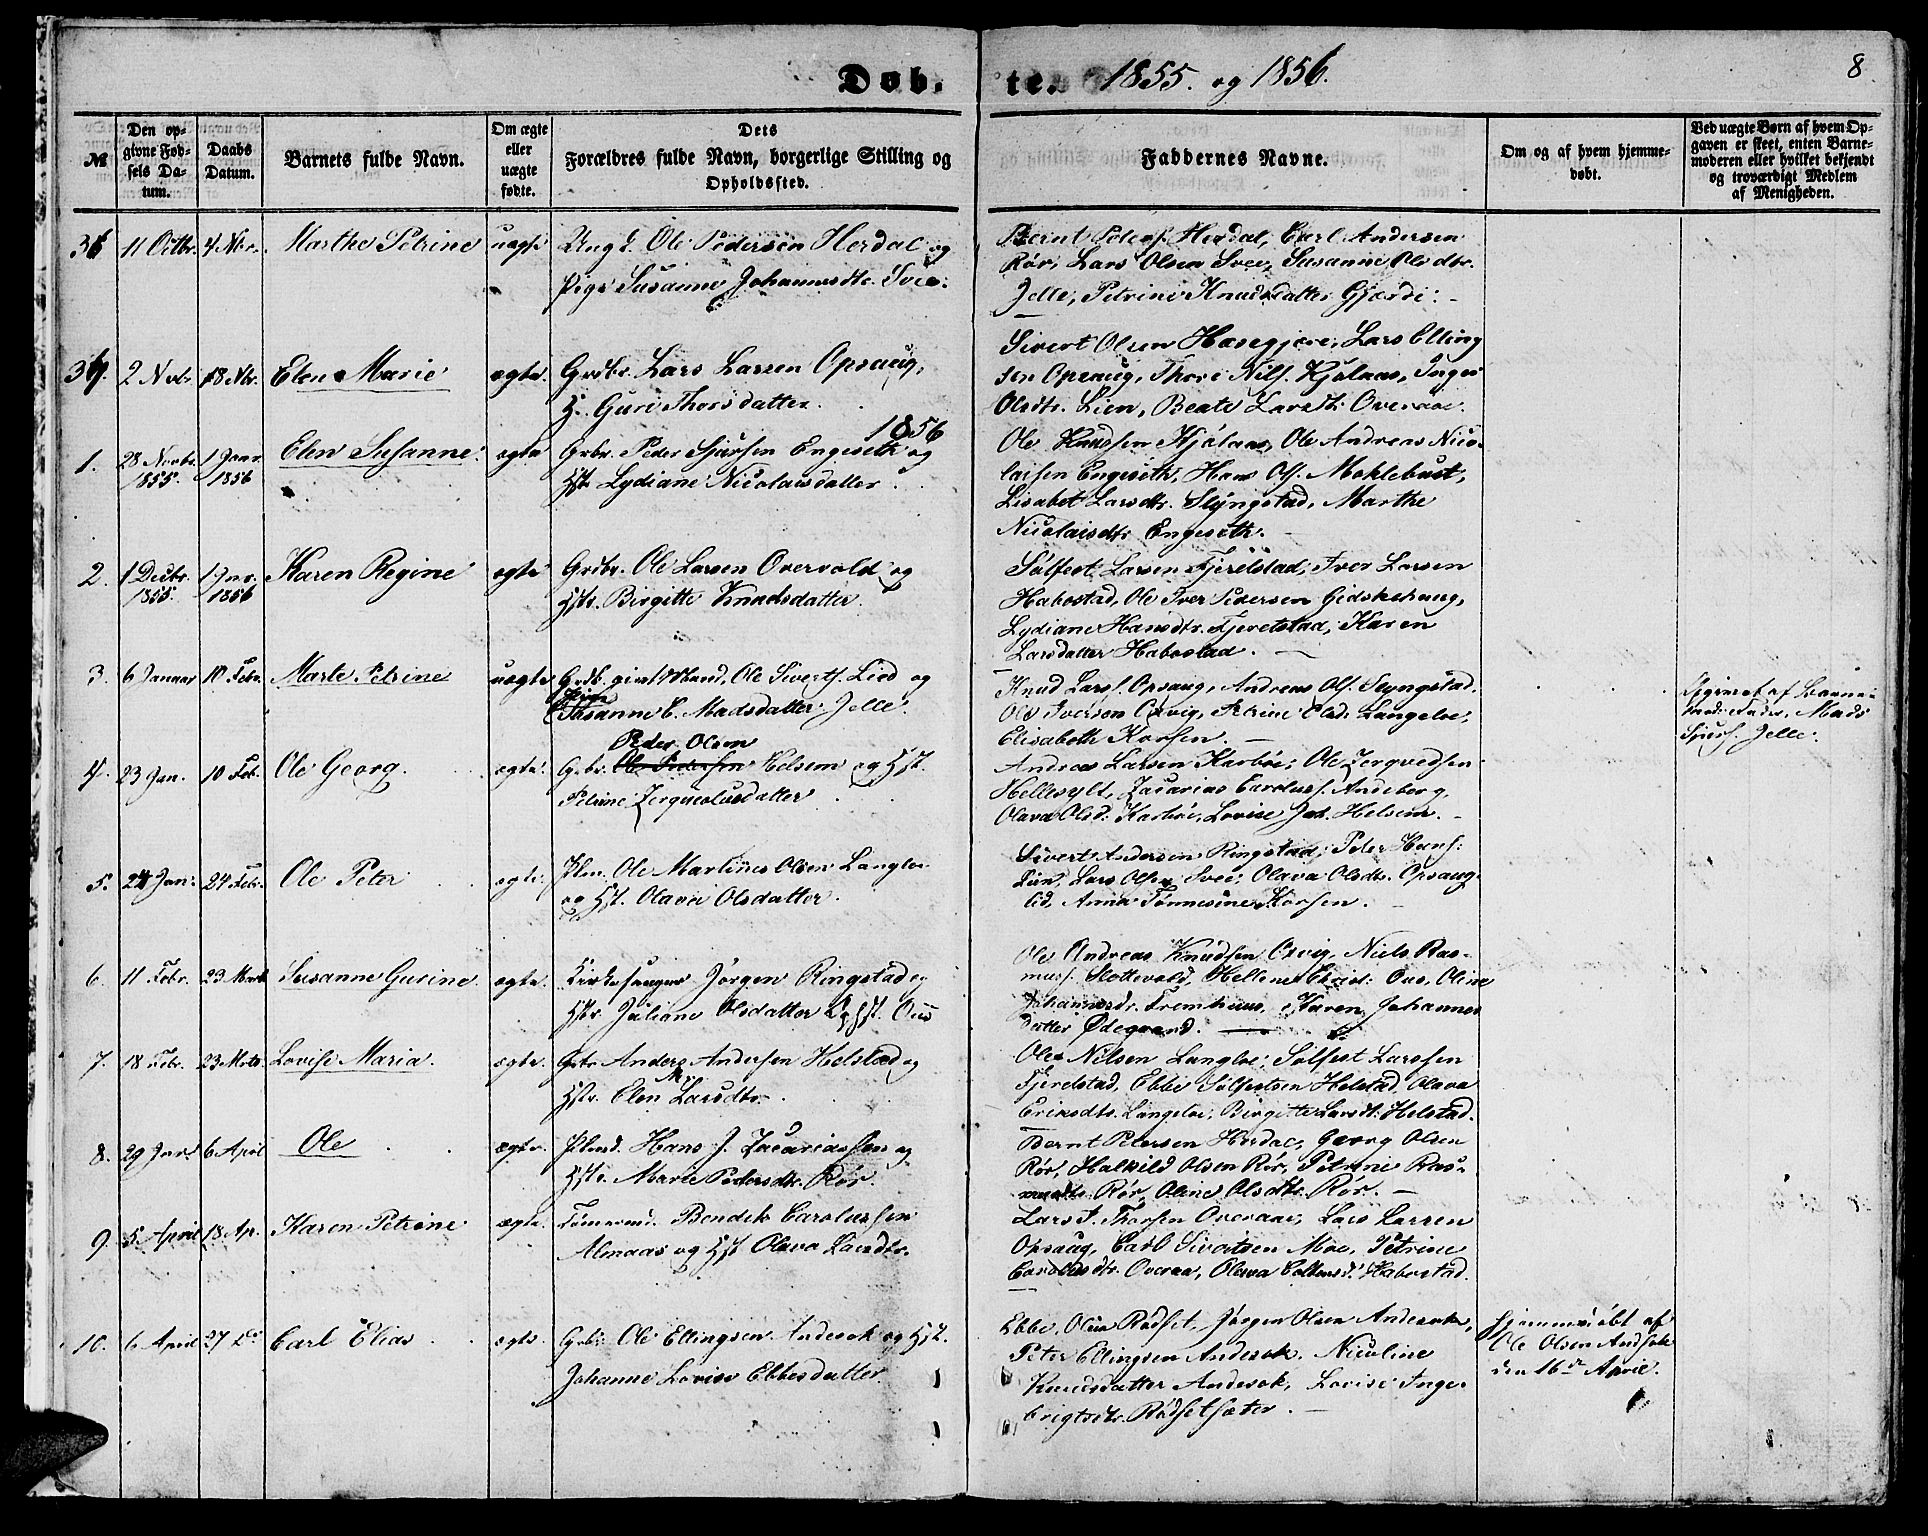 Døb. te. 1855. og 1856. 8
№
Den op-
givne Fød-
sels Da-
tum.
Daabs
Datum.
Barnets fulde Navn.
Om ægte
eller
uægte
fødte.
Dets
Forældres fulde Navn, borgerlige Stilling og
Opholdssted.
Faddernes Navne.
Om og af hvem hjemme-
døbt.
Ved uægte Børn af hvem Op-
gaven er skeet, enten Barne-
moderen eller hvilket bekjendt
og troværdigt Medlem
af Menigheden.
36 11 Octbr. 4 Nbr. Marthe Petrine uægte Ungk. Ole Pedersen Herdal og
Pige Susanne Johannesdtr. Svee.
Bernt Peders. Herdal, Carl Andersen
Rør, Lars Olsen Svee, Susanne Olsdtr.
Jelle, Petrine Knudsdatter Gjærde.
2 Nvbr. 18 Nbr. Elen Marie ægte. Grdbr. Lars Larsen Opsaug,
H. Guri Thorsdatter.
Sivert Olsen Hasegjære, Lars Elling
sen Opsaug, Thore Nils. Kjølaas, Inger
Olsdtr. Lien, Beate Larsdtr. Overaae.
1856
1. 28 Novbr. 1855. 1 Janr 1856 Elen Susanne. ægte Grbr. Peder Sjursen Engeseth og
Hst Lydiane Nicolaisdatter.
Ole Knudsen Kjølaas, Ole Andreas Nico-
laisen Engeseth, Hans Ols. Meklebust,
Lisabet Larsdtr. Slyngstad, Marthe
Nicolaisdtr Engeseth.
2. 1 Decbr. 1855. 1 Jnr. 1856 Karen Regine ægte Grdbr. Ole Larsen Overvold og
Hstr. Birgitte Knudsdatter.
Sølfest Larsen Fjerelstad, Iver Larsen
Habostad, Ole Iver Pedersen Gidskehaug,
Lydiane Hansdtr. Fjeretstad, Karen
Larsdatter Habostad.
3. 6 Januar 10 Febr. Marte Petrine uægte Grdb. givt Mand, Ole Siverts. Lied og
Susanne E. Madsdatter Jelle.
Knud Lars. Opsaug, Andreas Ols. Slyngstad.
Ole Iverson Orvig, Petrine Elsd. Langeloe,
Elisabeth Korsen.
Opgivet af Barne-
mod. Fader, Mads
Sjurs. Jelle.
4. 23 Jan. 10 Feb. Ole Georg. ægte. Peder Olsen
Grbr. Ole Pedersen Helsem og Hst.
Petrine Zerqueolusdatter
Andreas Larsen Karbøe, Ole Zerqvedsen
Hellesylt, Zacarias Carolus. Andeberg,
Olava Olsd. Karbøe, Lovise Joh. Helsem.
5. 24 Jan. 24 Febr. Ole Peter ægte. Plm. Ole Martinus Olsen Langloe
og Hst. Olava Olsdatter.
Sivert Andersen Ringstad, Peder Hans.
Lien, Lars Olsen Svee, Olava Olsdtr. Opsaug-
lid, Anna Tønnesine Korsen.
6. 11 Febr. 23 Marts Susanne Gurine ægte. Kirkesanger Jørgen Ringstad og
Hstr. Juliane Olsdatter Ophst. Ous
Ole Andreas Knudsen Orvig, Niels Ras-
muss. Slottevold, Hellene Christ. Ous, Oline
Johannesdtr. Fremhuus, Karen Johannes
datter Ødegaard.
7. 18 Febr. 23 Mrts. Lovise Maria. ægte. Gbr Anders Andersen Helstad og
Hstr. Elen M. Larsdtr.
Ole Nilsen Langloe, Sølfest Larssen
Fjerelstad, Ebbe Sølfestsen Helstad, Olava
Eriksdtr. Langeloe, Birgitte Larsdt. Helstad.
8. 29 Jnr. 6 April Ole ægte. Plmd. Hans J. Zacariassen og
Hstr. Marie Pedersdtr. Rør.
Bernt Petersen Herdal, Georg Olsen
Rør, Halkild Olsen Rør, Petrine Ras-
musdtr. Rør, Oline Olsdtr. Rør.
9. 5 April 18 Ap. Karen Petrine ægte. Tømermd. Bendik Carolussen
Almaas og Hst Olava Larsdtr.
Lars T. Thorsen Overaae, Lars Larsen
Opsaug, Carl Sivertsen Moe, Petrine
Carolusdtr. Overaa, Olava Habostad.
10. 6 April 27 do Carl Elias ægte. Grbr. Ole Ellingsen Andesok og Hst.
Johanne Lovise Ebbesdatter
Ebbe Olsen Rødset, Jørgen Olsen Andesok,
Peter Ellingsen Andesok, Nicoline
Knudsdatter Andesok, Lovise Inge-
brigtsdtr. Rødsetsæter.
Hjemmedøbt af
Ole Olsen Andsok
den 16de April.